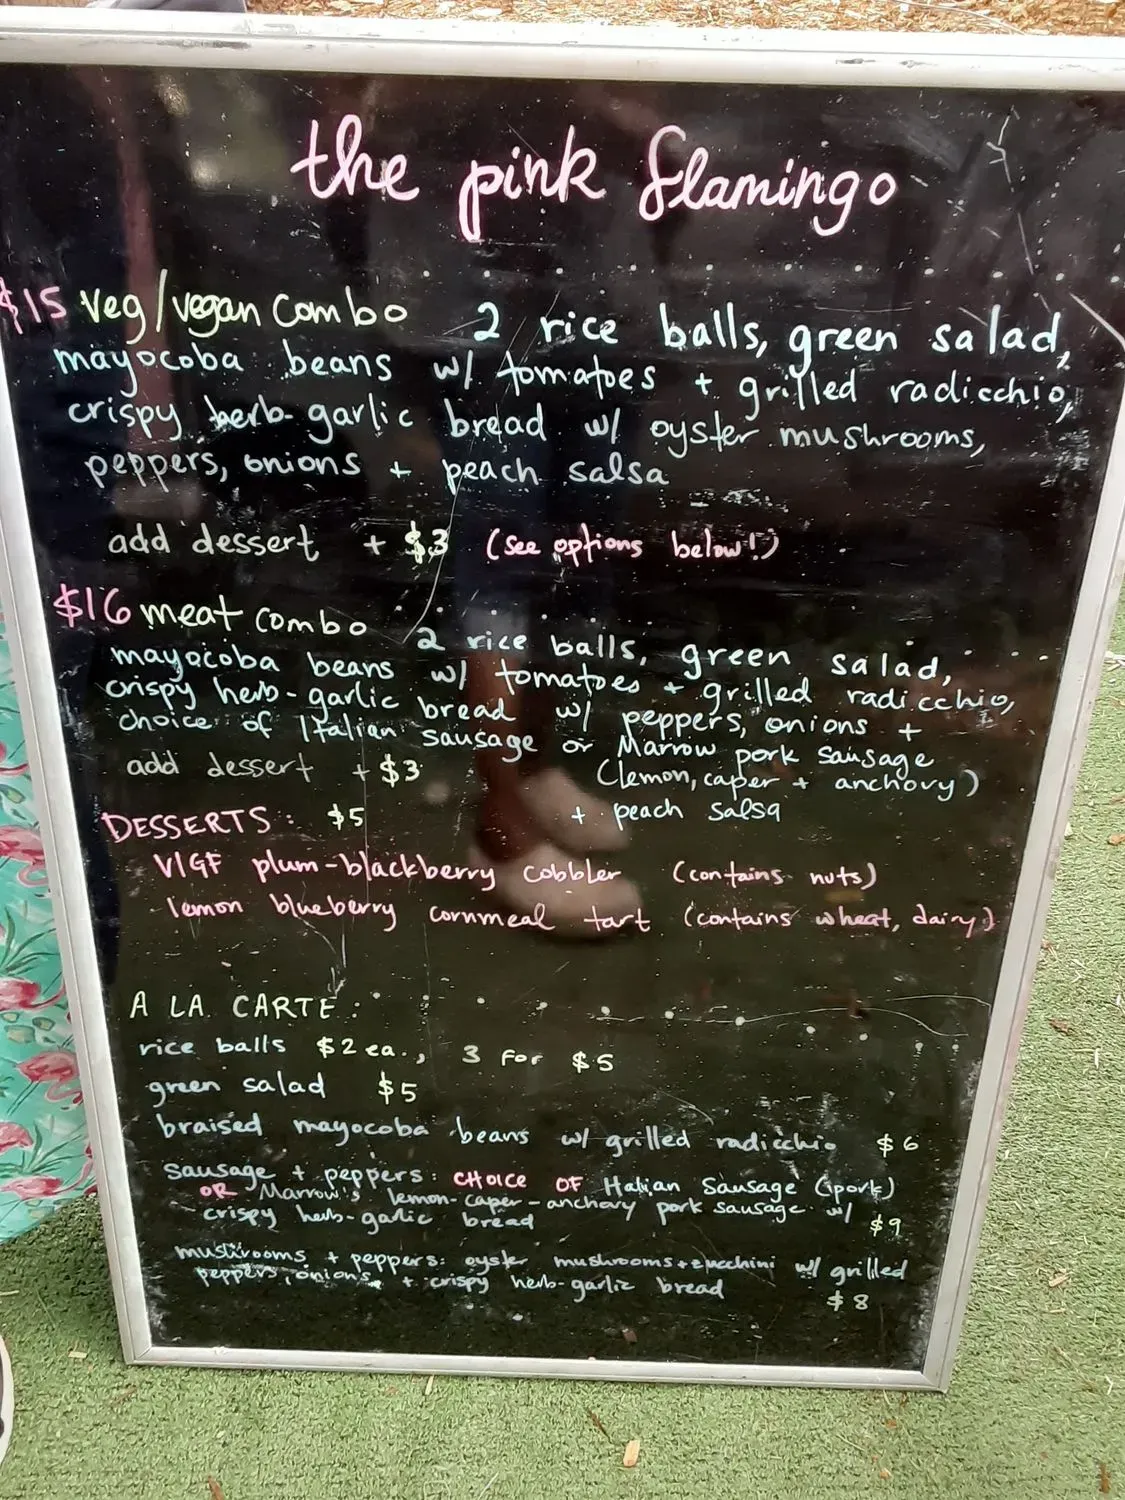 the pink flamingo
$15 veg/vegan combo 2 rice balls, green salad,
mayocoba beans w/ tomatoes + grilled radicchio,
crispy herb-garlic bread w/ oyster mushrooms,
peppers, onions + peach salsa
add dessert + $3 (see options below!)
$16 meat combo 2 rice balls, green salad,
mayocoba beans w/ tomatoes + grilled radicchio,
crispy herb-garlic bread w/ peppers, onions +
choice of Italian sausage or Marrow pork sausage
(lemon, caper + anchovy)
add dessert + $3
+ peach salsa
DESSERTS: $5
V/GF plum-blackberry cobbler (contains nuts)
lemon blueberry cornmeal tart (contains wheat, dairy)
A LA CARTE:
rice balls $2 ea., 3 for $5
green salad $5
braised mayocoba beans w/ grilled radicchio $6
sausage + peppers: CHOICE OF Italian Sausage (pork)
OR Marrow's lemon-caper-anchovy pork sausage w/
crispy herb-garlic bread $9
mushrooms + peppers: oyster mushrooms + zucchini w/ grilled
peppers, onions, + crispy herb-garlic bread
$8